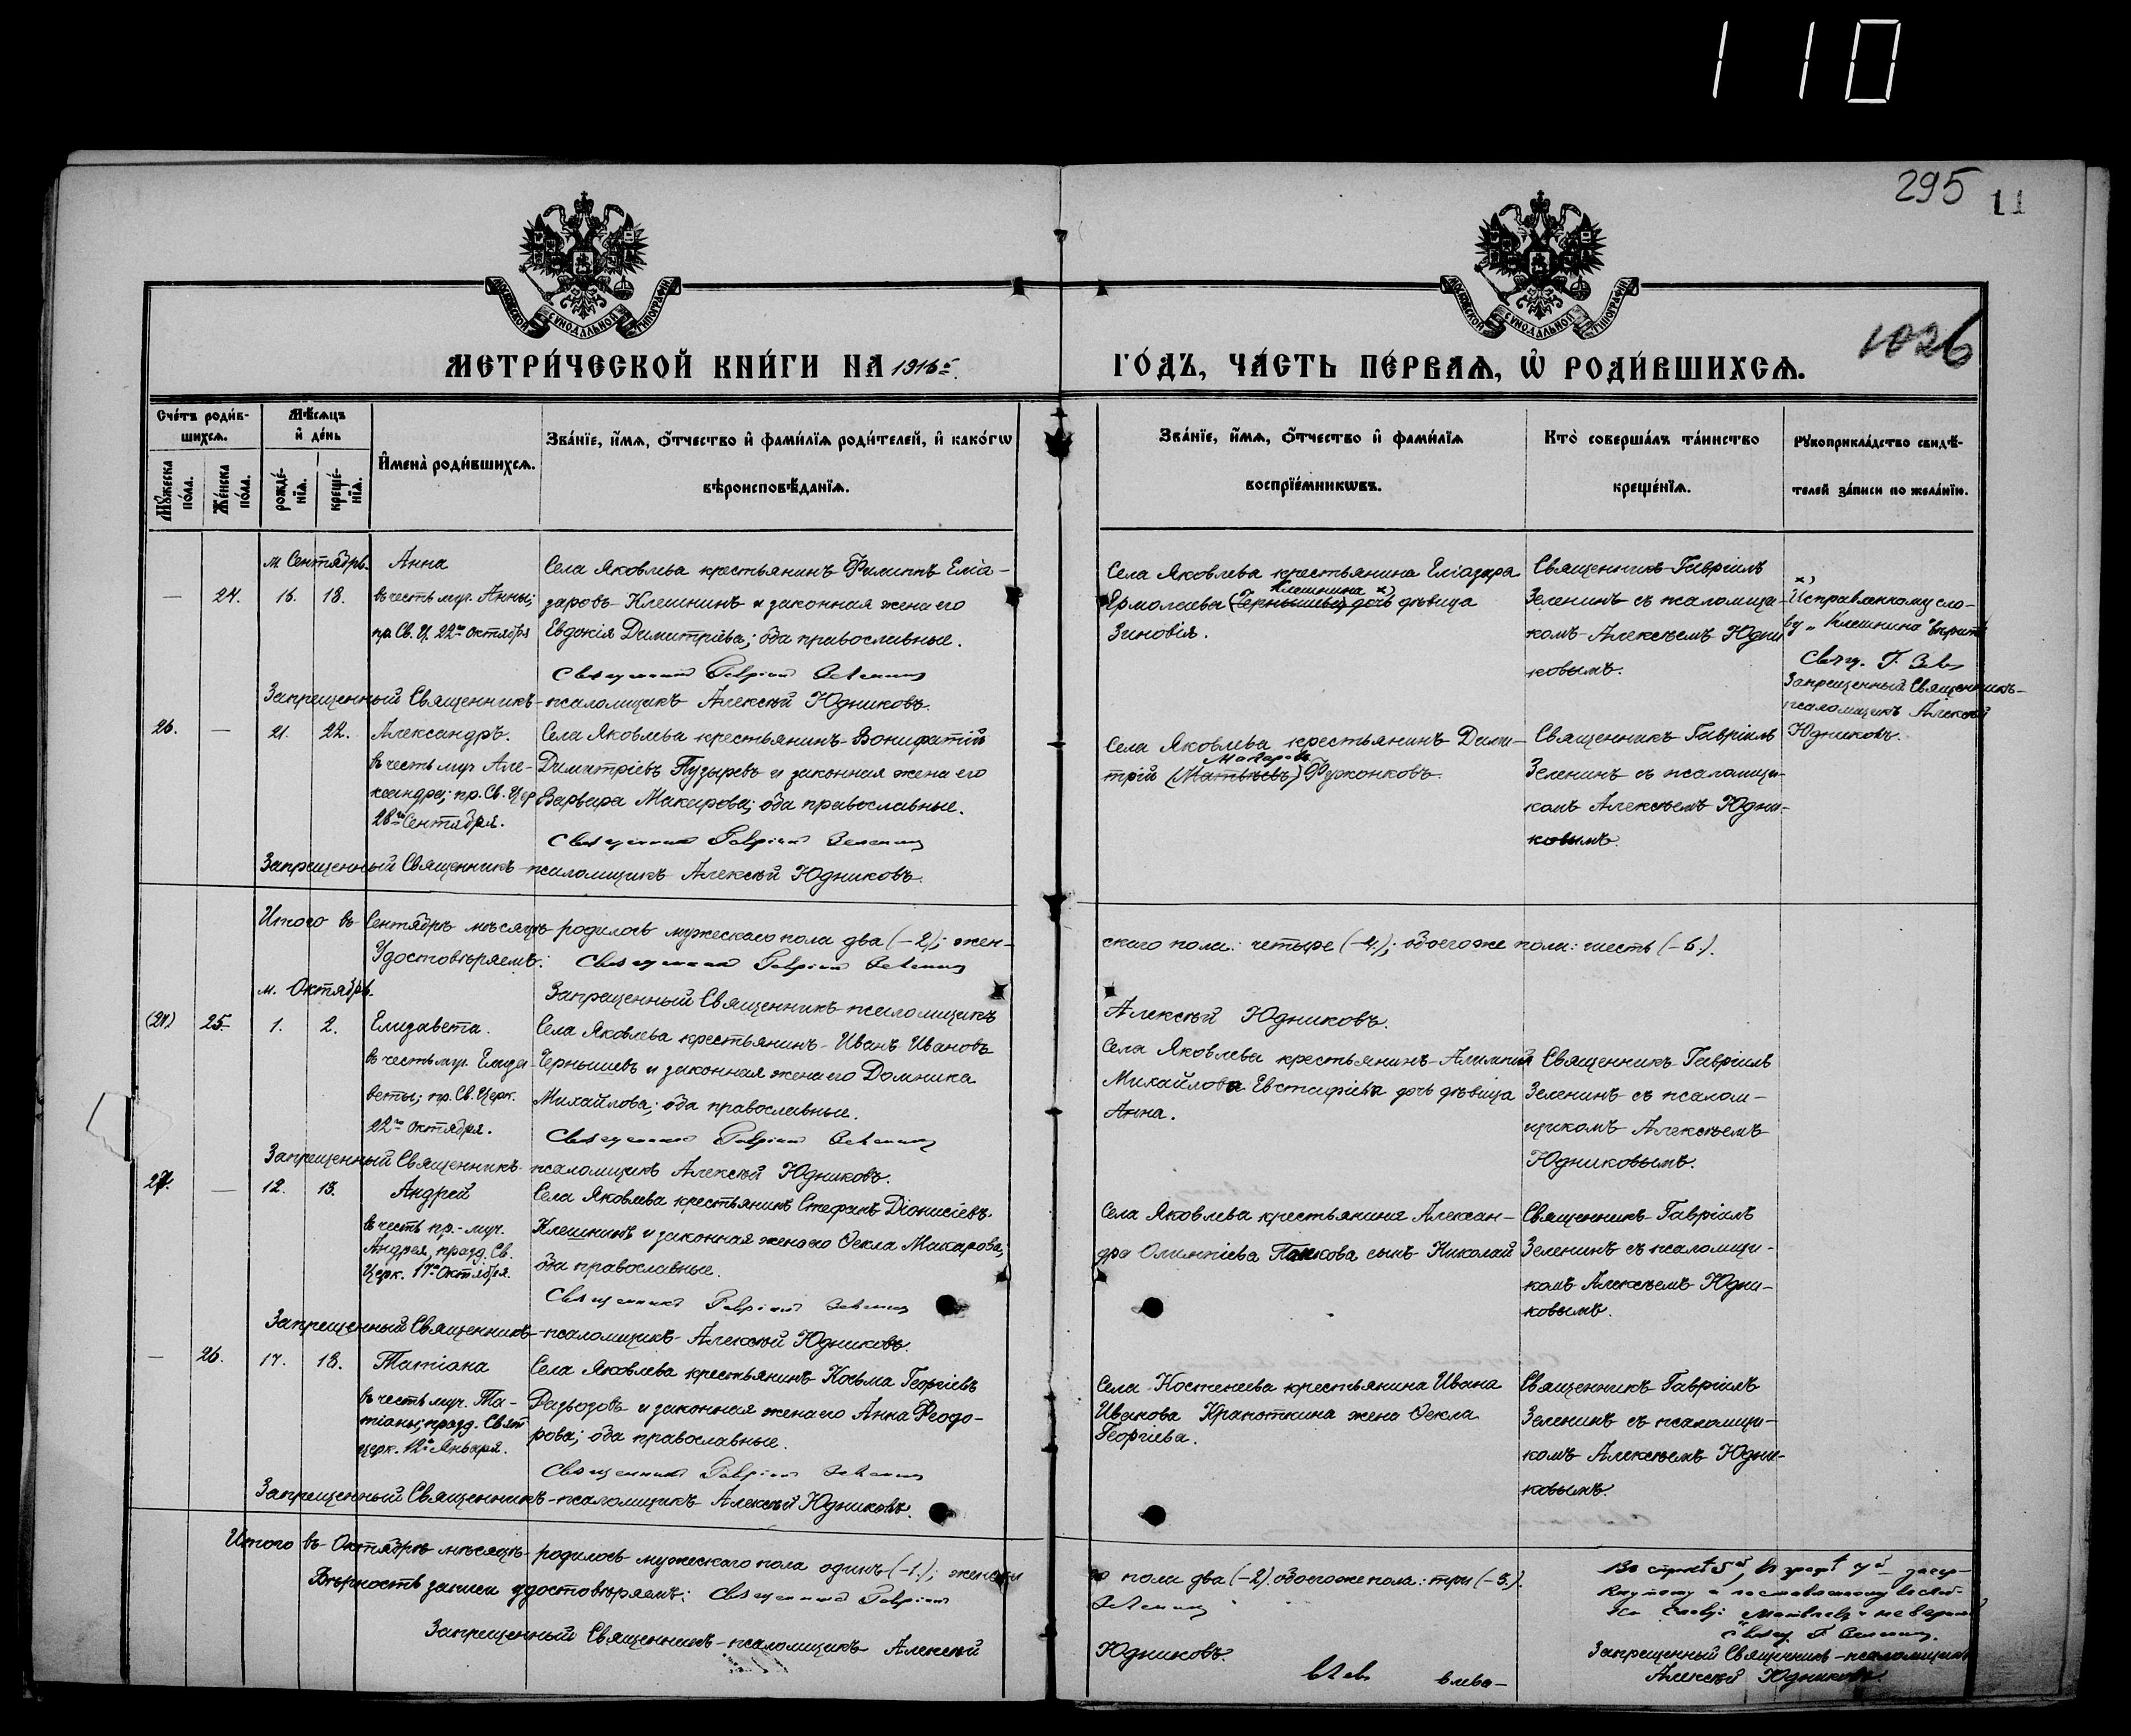 110
295
11
1026
МОСКОВСКОЙ СѴНОДАЛЬНОЙ ТИПОГРАФІИ
МОСКОВСКОЙ СѴНОДАЛЬНОЙ ТИПОГРАФІИ
МЕТРИ́ЧЕСКОЙ КНИ́ГИ НА 1916й
ГО́ДЪ, ЧА́СТЬ ПЕ́РВАѦ, Ѡ҆ РОДИ́ВШИХСѦ.
Сче́тъ роди́в-
шихсѧ.
Мꙋ́жеска по́ла.
Же́нска по́ла.
Мѣ́сѧцъ
и҆ де́нь
рожде́-
нїѧ.
креще́-
нїѧ.
И҆мена̀ роди́вшихсѧ.
Зва́нїе, и҆́мѧ, ѻ҆́тчество и҆ фами́лїѧ роди́телей, и҆ како́гѡ
вѣроисповѣ́данїѧ.
Зва́нїе, и҆́мѧ, ѻ҆́тчество и҆ фами́лїѧ
воспрїе́мникѡвъ.
Кто̀ соверша́лъ та́инство
креще́нїѧ.
Рꙋкоприкла́дство свидѣ́-
телей за́писи по жела́нїю.
м Сентябрь.
— 24. 16. 18.
Анна
въ честь муч. Анны;
пр. Св. Ц. 22го Октября
Села Яковлева крестьянинъ Филиппъ Еліа-
заровъ Клешнинъ и законная жена его
Евдокія Димитріева; оба православные.
Священникъ Гавріилъ Зеленинъ
Запрещенный Священникъ-псаломщикъ Алексѣй Юдниковъ.
Села Яковлева крестьянина Еліазара
Клешнина х)
Ермолаева (Чернышева) дочь дѣвица
Зиновія.
Священникъ Гавріилъ
Зеленинъ съ псаломщи-
комъ Алексѣемъ Юдни
ковымъ.
х)
Исправленному сло-
ву „Клешнина" вѣрить
Свящ. Г. Зел
Запрещенный Священникъ-
псаломщикъ Алексѣй
Юдниковъ.
26. — 21. 22.
Александръ.
въ честь муч Але-
ксандра; пр. Св. Цер
28го Сентября.
Села Яковлева крестьянинъ Вонифатій
Димитріевъ Пузыревъ и законная жена его
Варвара Макарова; оба православные.
Священникъ Гавріилъ Зеленинъ
Запрещенный Священникъ-псаломщикъ Алексѣй Юдниковъ.
Села Яковлева крестьянинъ Дими-
Макаровъ
трій (Матвѣевъ) Фуженковъ.
Священникъ Гавріилъ
Зеленинъ съ псаломщи-
комъ Алексѣемъ Юдни-
ковымъ.
Итого въ Сентябрѣ мѣсяцѣ родилось мужескаго пола два (-2); жен-
скаго пола: четыре (-4.); обоего же пола: шесть (-6.).
Удостовѣряемъ: Священникъ Гавріилъ Зеленинъ
Запрещенный Священникъ-псаломщикъ
Алексѣй Юдниковъ.
м. Октябрь.
25 1. 2.
Елизавета.
въ честь муч. Елиза
веты; пр. Св. Церк.
22го Октября.
Села Яковлева крестьянинъ Иванъ Ивановъ
Чернышевъ и законная жена его Домника
Михайлова; оба православные.
Священникъ Гавріилъ Зеленинъ
Запрещенный Священникъ-псаломщикъ Алексѣй Юдниковъ.
Села Яковлева крестьянинъ
Михайлова Евстафіева дочь дѣвица
Анна.
Священникъ Гавріилъ
Зеленинъ съ псалом-
щикомъ Алексѣемъ
Юдниковымъ.
27. — 12. 13.
Андрей
въ честь пр.-муч.
Андрея, празд. Св.
Церк. 17го Октября.
Села Яковлева крестьянинъ Стефанъ Діонисіевъ
Клешнинъ и законная жена его Ѳекла Макарова;
оба православные.
Священникъ Гавріилъ Зеленинъ
Запрещенный Священникъ-псаломщикъ Алексѣй Юдниковъ.
Села Яковлева крестьянина Алексан-
дра Олимпіева Панкова сынъ Николай
Священникъ Гавріилъ
Зеленинъ съ псаломщи-
комъ Алексѣемъ Юдни-
ковымъ.
— 26. 17. 18.
Татіана
въ честь муч. Та-
тіаны; празд. Свят
церк. 12го Января.
Села Яковлева крестьянинъ Косьма Георгіевъ
и законная жена его Анна Ѳеодо-
рова; оба православные.
Священникъ Гавріилъ Зеленинъ
Запрещенный Священникъ-псаломщикъ Алексѣй Юдниковъ.
Села Костенеева крестьянина Ивана
Иванова Крапоткина жена Ѳекла
Георгіева.
Священникъ Гавріилъ
Зеленинъ съ псаломщи-
комъ Алексѣемъ Юдни-
ковымъ.
Итого въ Октябрѣ мѣсяцѣ родилось мужескаго пола одинъ (-1.); женска
го пола два (-2). обоего же пола: три (-3.).
Вѣрность записи удостовѣряемъ: Священникъ Гавріилъ
Зеленинъ
Запрещенный Священникъ-псаломщикъ Алексѣй
Юдниковъ.
Запрещенный Священникъ-псаломщикъ
Алексѣй Юдниковъ.